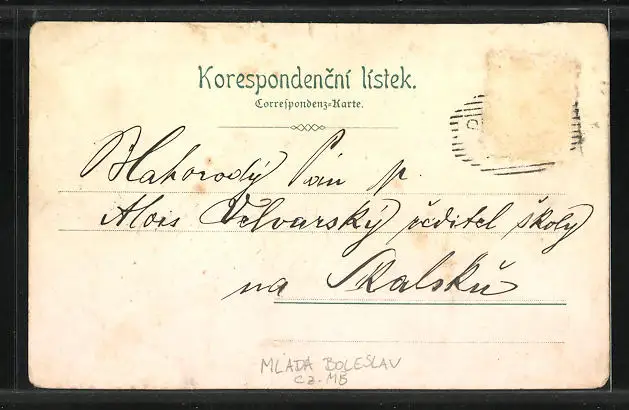 Korespondenční lístek.
Correspondenz-Karte.
Blahorodý Pán p.
Alois Velvarský ředitel školy
na Skalsku
MLADÁ BOLESLAV
CZ-MB